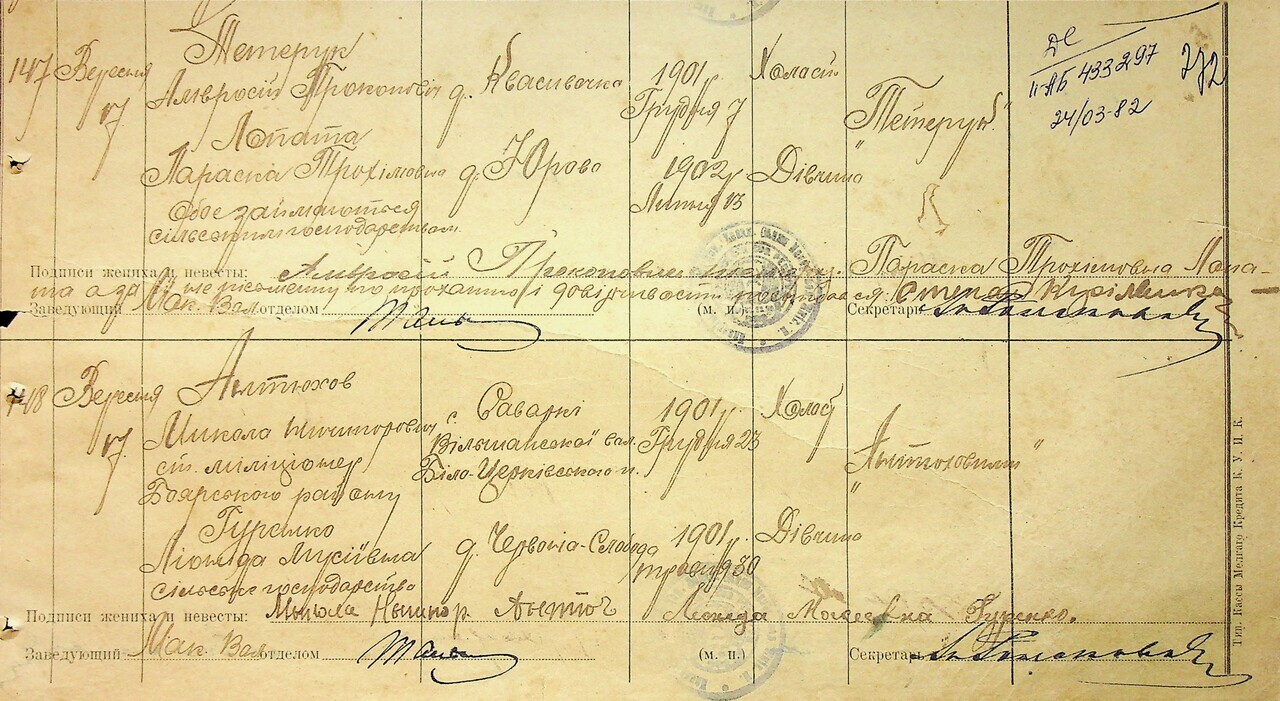 147 Вересня 17
Тетерук
Амвросій Прокопович
д. Квасивочка
1901 р.
Грудня 7
Холост
"Тетерук"
ДС
II-АБ 433297
24/03-82
272
Лопата
Параска Трохімовна
д. Юрово
1902 р.
Липня 13
Дівчина
Обоє займаються
сільським господарством
Подписи жениха и невесты: Амвросій Прокопович Параска Трохімовна Лопа-
та а за неписьменну по проханню і довірливості расписався: Степан
Заведующий Мак. Вол. отделом (м. п.) Секретарь
148 Вересня 17
Микола
ст. міліціонер
Боярського району
с. Саваркі
Вільшанської вол.
Біло-Церківського п.
1901 р.
Грудня 23
Холост
Гуренко
Леоніда Мусіївна
сільське господарство
д. Червона-Слобода
1901 р.
травня 30
Дівчина
Подписи жениха и невесты: Микола Гуренко.
Заведующий Мак. Вол. отделом (м. п.) Секретарь
Тип. Кассы Мелкаго Кредита К. У. И. К.